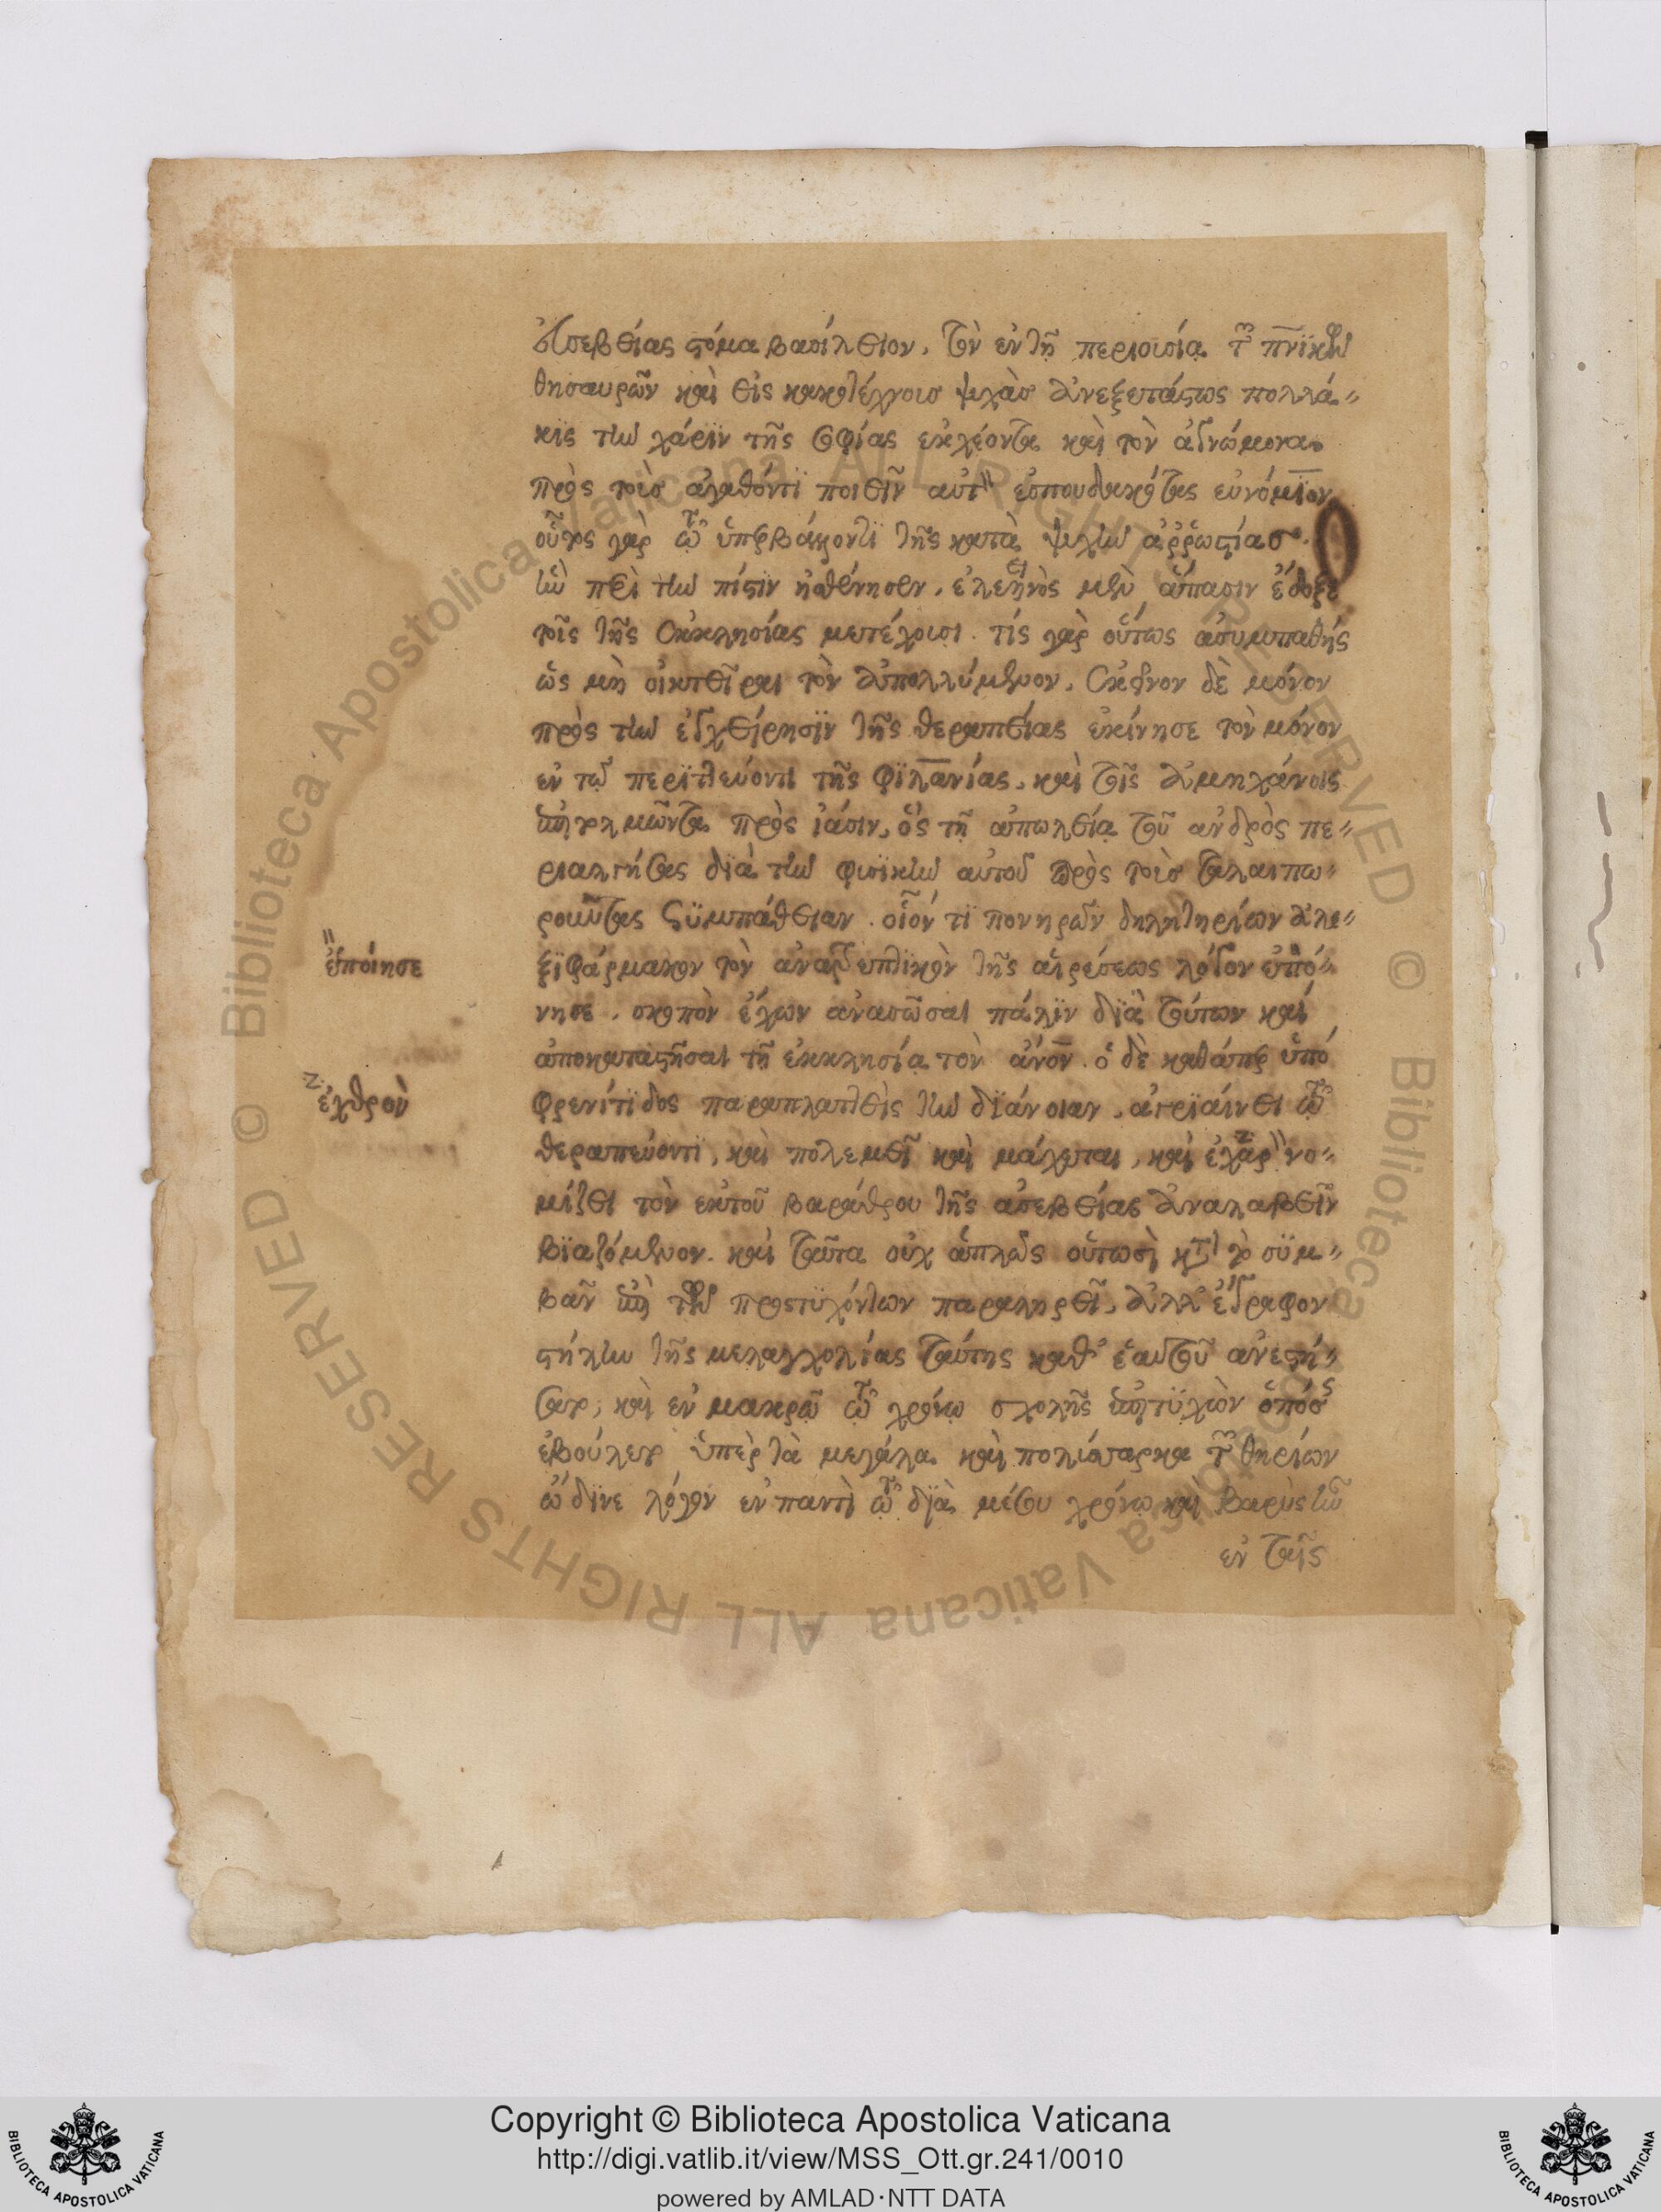 εὐσεβείας στόμα βασίλειον, τὸν ἐν τῇ περιουσίᾳ τῶν πνϊκῶν
θησαυρῶν καὶ εἰς κακοτέχνους ψυχὰς ἀνεξετάστως πολλά-
κις τὴν χάριν τῆς σοφίας ἐκχέοντα καὶ τὸν ἀγνώμονα
πρὸς τοὺς ἀγαθόν τι ποιεῖν αὐτὸν ἐσπουδακότας εὐνόμιον
οὗτος γὰρ τῷ ὑπερβάλλοντι τῆς κατὰ ψυχὴν ἀῤῥωστίας
ἣν περὶ τὴν πίστιν ἠσθένησεν, ἐλεεινὸς μὲν ἅπασιν ἔδοξε
τοῖς τῆς ἐκκλησίας μετέχουσι. τίς γὰρ οὕτως ἀσυμπαθὴς
ὡς μὴ οἰκτεῖραι τὸν ἀπολλύμενον, ἐκεῖνον δὲ μόνον
πρὸς τὴν ἐγχείρησιν τῆς θεραπείας ἐκίνησε τὸν μόνον
ἐν τῷ περιττεύοντι τῆς φιλανίας, καὶ τοῖς ἀμηχάνοις
ἐπιτολμῶντα πρὸς ἴασιν, ὃς τῇ ἀπωλείᾳ τοῦ ἀνδρὸς πε-
ριαλγήσας διὰ τὴν φυσικὴν αὐτοῦ πρὸς τοὺς ταλαιπω-
ροῦντας συμπάθειαν. οἷόν τι πονηρῶν δηλητηρίων ἀλε-
ξιφάρμακον τὸν ἀνατρεπτικὸν τῆς αἱρέσεως λόγον ἐπό-
νησε, σκοπὸν ἔχων ἀνασῶσαι πάλιν διὰ τούτων καὶ
ἐποίησε
ἀποκαταστῆσαι τῇ ἐκκλησίᾳ τὸν ἄνον. ὁ δὲ καθάπερ ὑπὸ
φρενίτιδος παραπλαγεὶς τὴν διάνοιαν, ἀγριαίνει τῷ
ἐχθρὸν
θεραπεύοντι, καὶ πολεμεῖ καὶ μάχεται, καὶ νο-
μίζει τὸν ἐκ τοῦ βαράθρου τῆς ἀσεβείας ἀναλαβεῖν
βιαζόμενον. καὶ ταῦτα οὐχ ἁπλῶς οὑτωσὶ κατὰ τὸ συμ-
βὰν ἐπὶ τῶν προστυχόντων παραληρεῖ, ἀλλ' ἔγγραφον
στήλην τῆς μελαγχολίας ταύτης καθ' ἑαυτοῦ ἀνεστή-
σατο, καὶ ἐν μακρῷ τῷ χρόνῳ σχολῆς ἐπιτυχὼν ὁπόσης
ἐβούλετο ὑπὲρ τὰ μεγάλα καὶ πολύσαρκα τῶν θηρίων
ὤδινε λόγον ἐν παντὶ τῷ διὰ μέσου χρόνῳ καὶ βαρὺς ἦν
ἐν ταῖς
Copyright © Biblioteca Apostolica Vaticana
http://digi.vatlib.it/view/MSS_Ott.gr.241/0010
powered by AMLAD·NTT DATA
BIBLIOTECA APOSTOLICA VATICANA
BIBLIOTECA APOSTOLICA VATICANA
© Biblioteca Apostolica Vaticana ALL RIGHTS RESERVED © Biblioteca Apostolica Vaticana ALL RIGHTS RESERVED